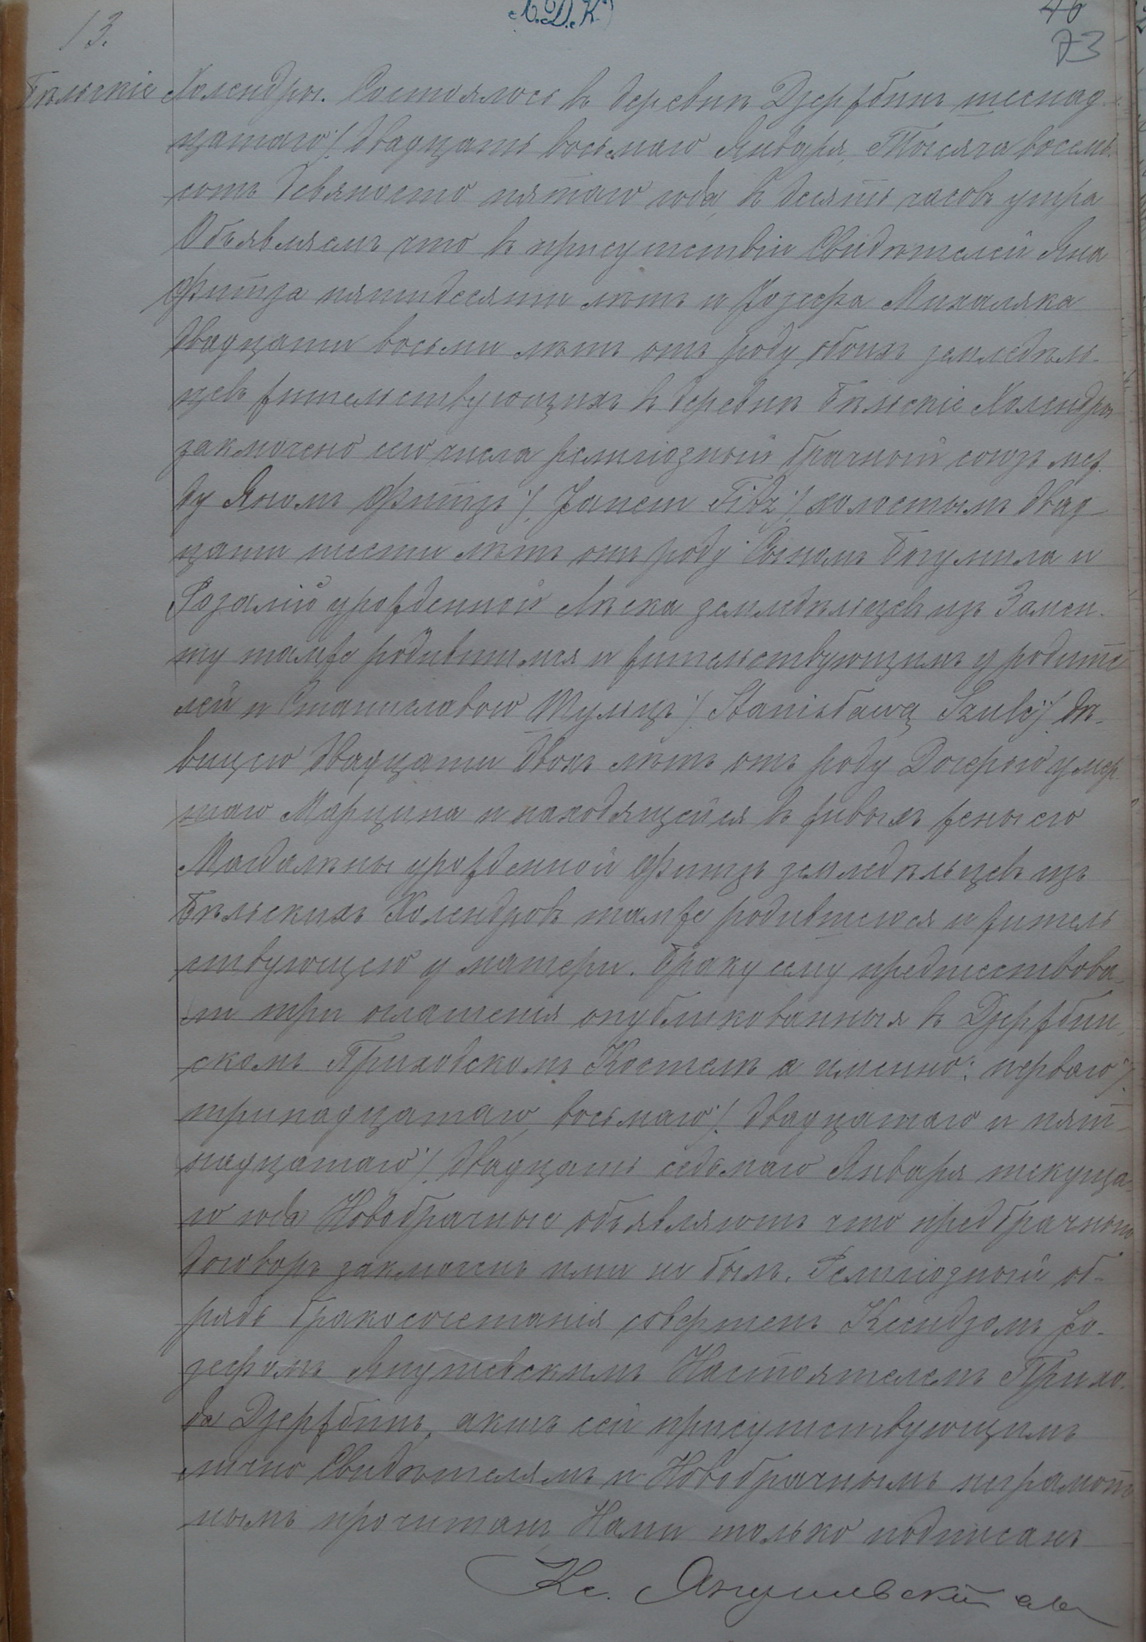 А.Д.К.
46
73
13.
Бѣльскіе Холендры. Состоялось въ деревнѣ Дзержбинъ шеснад-
цатаго /:двадцать восьмаго Января, Тысяча восемь-
сотъ девяносто пятаго года, въ десять часовъ утра
Объявляемъ что въ присутствіи Свидѣтелей Яна
Фитза пятидесяти лѣтъ и Іозефа Михаляка
двадцати восьми лѣтъ отъ роду обоихъ земледѣль-
цевъ жительствующихъ въ деревнѣ Бѣльскіе Холендры
заключено сего числа религіозный брачный союзъ меж
ду Яномъ Фитцъ /:Janem Fibz:/ холостымъ двад-
цати шести лѣтъ отъ роду Сыномъ Богумила и
Розаліи урожденной Лѣска земледѣльцевъ изъ Замен-
ту тамже родившимся и жительствующимъ у родите
лей и Станиславою Шульцъ /:Stanisławą Szulc:/ дѣ-
вицею двадцати двохъ лѣтъ отъ роду Дочерью умер-
шаго Марцина и находящейся въ живыхъ жены его
Магдалѣны урожденной Фитзъ земледѣльцевъ изъ
Бѣльскихъ Холендровъ тамже родившеюся и житель
ствующею у матери. Браку сему предшествова-
ли три оглашенія опубликованныя въ Дзержбин-
скомъ Приходскомъ Костелѣ а именно: перваго /:
тринадцатаго, восьмаго /: двадцатаго и пят-
надцатаго /: двадцать седьмаго Января текуща-
го года Новобрачные объявляютъ что предбрачный
договоръ заключенъ ими не былъ. Религіозный об-
рядъ бракосочетанія совершенъ Ксендзомъ Іо-
зефомъ Янушевскимъ Настоятелемъ Прихо-
да Дзержбинъ, актъ сей присутствующимъ
лично Свидѣтелямъ и Новобрачнымъ неграмот
нымъ прочитанъ Нами только подписанъ
Кс. Янушевскій